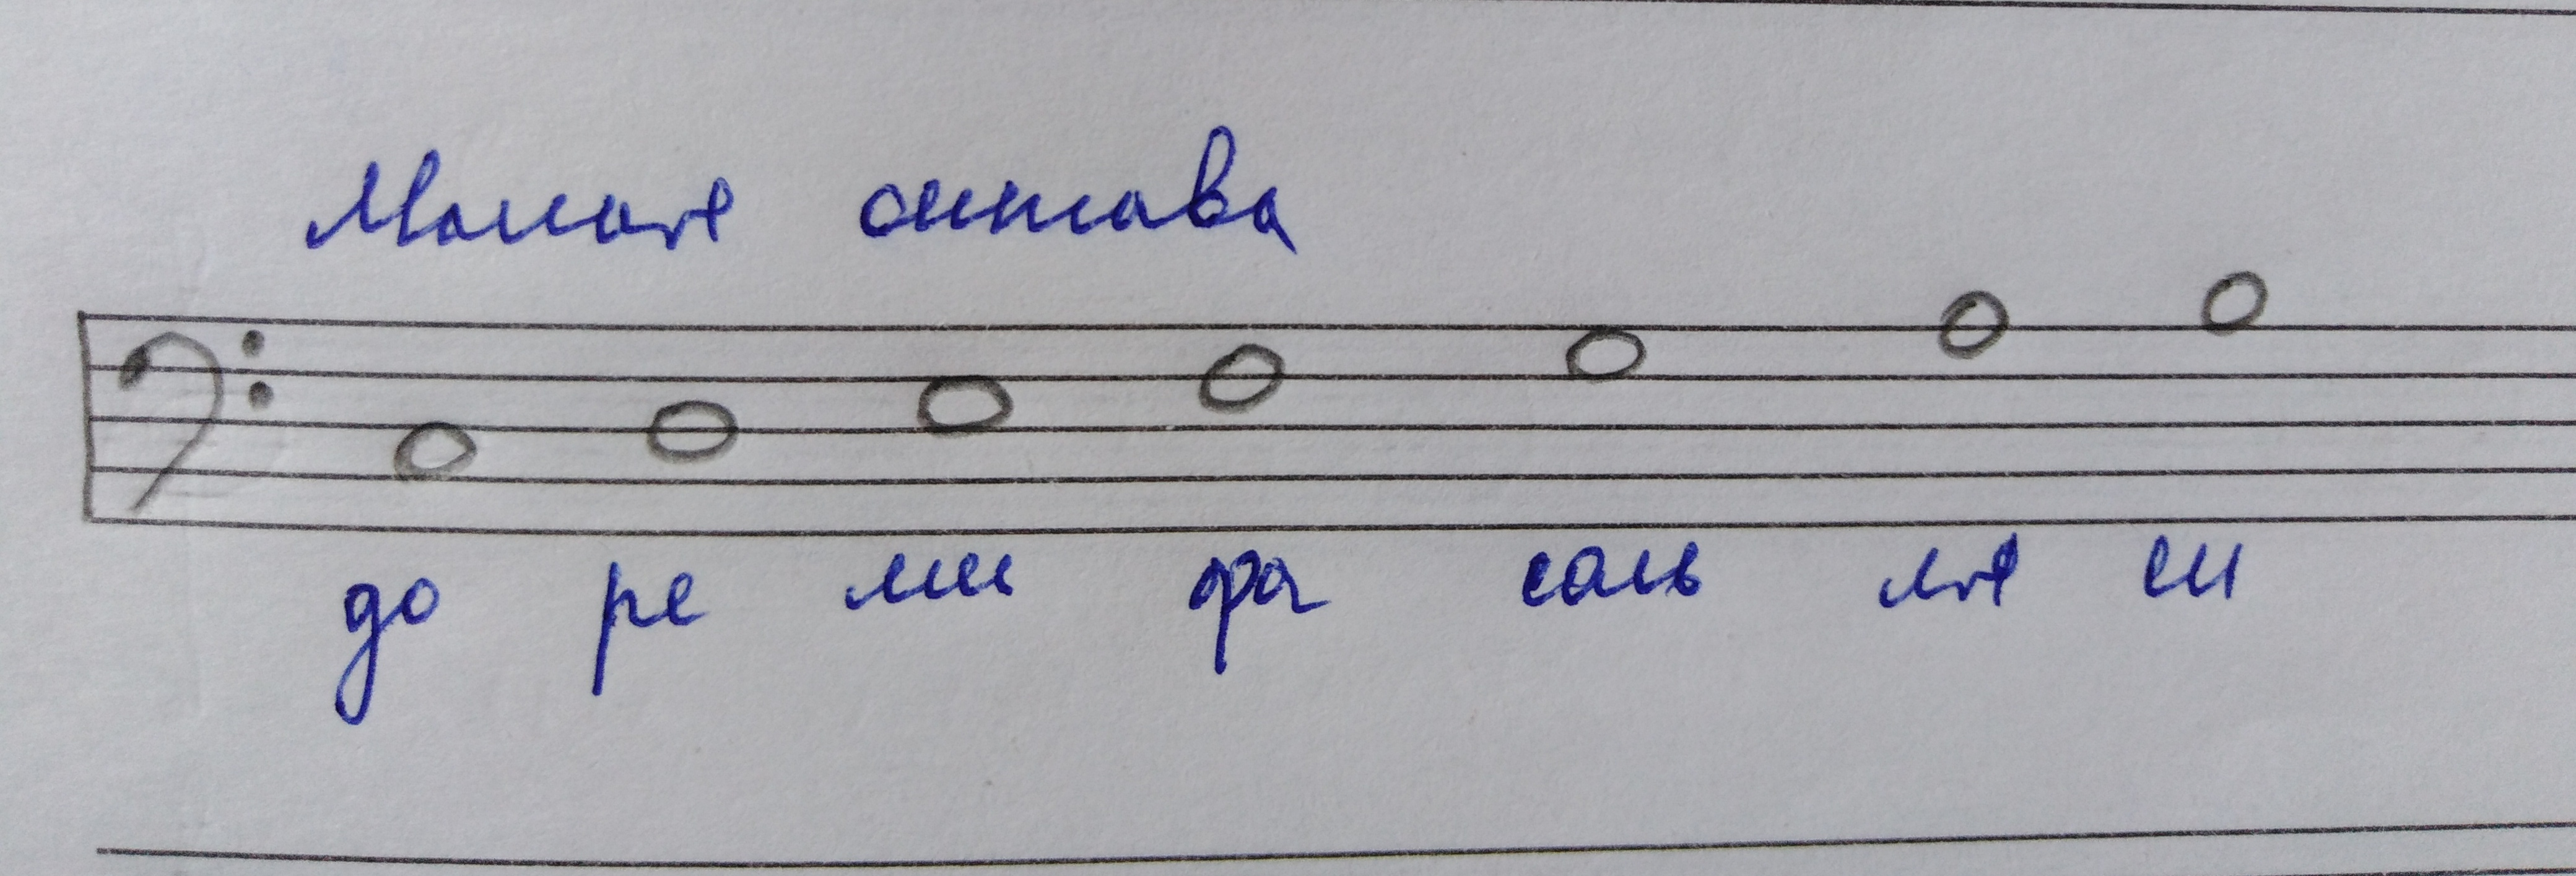 Малая октава
до ре ми фа соль ля си